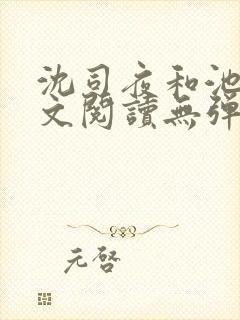 沈司夜和池
文閱讀無彈
元啓